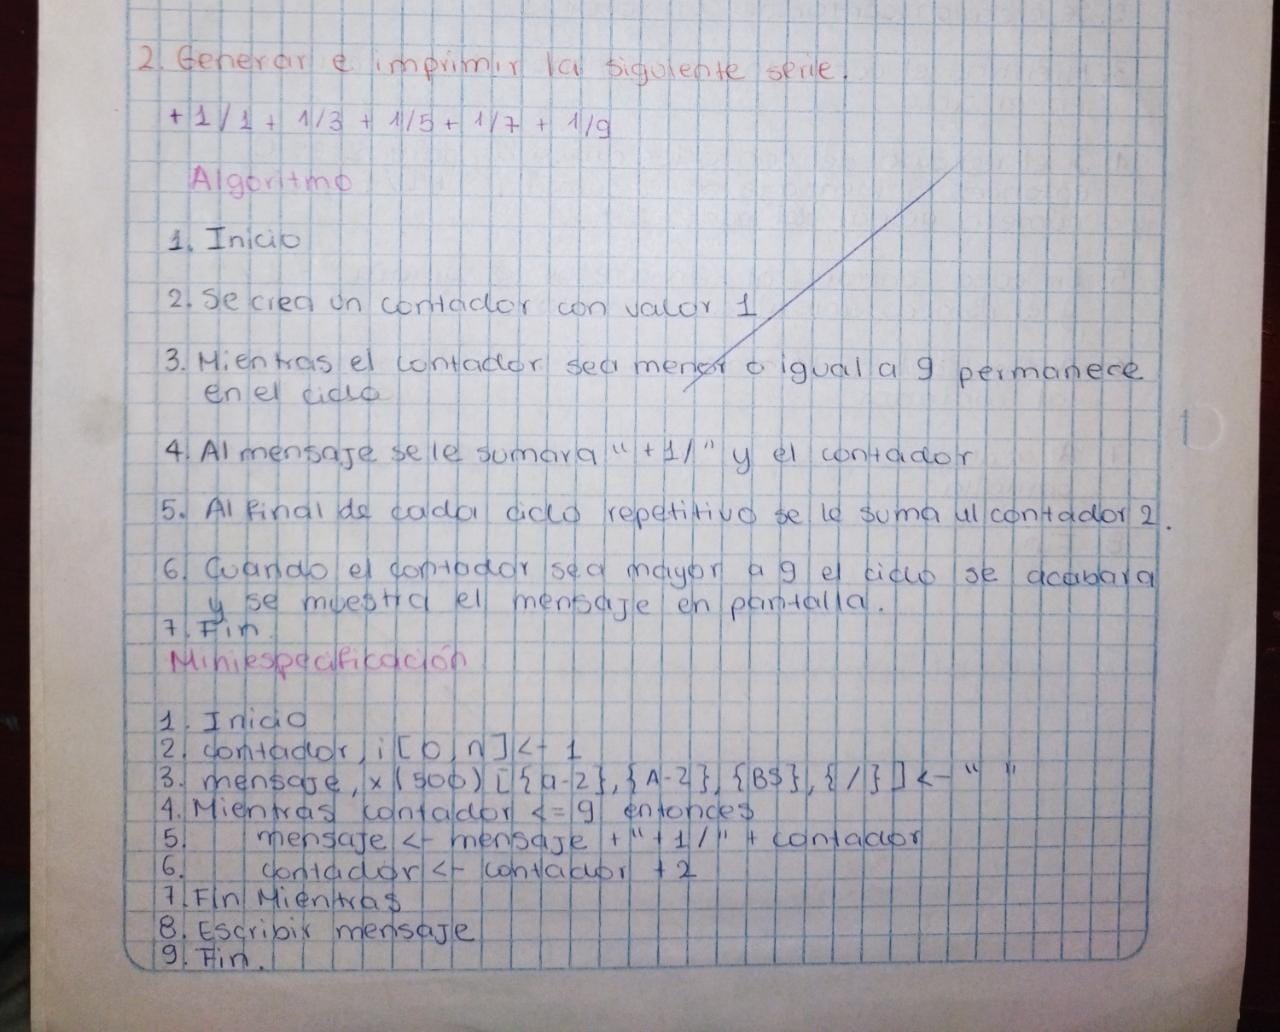 2. Generar e imprimir la siguiente serie.
+ 1/1 + 1/3 + 1/5 + 1/7 + 1/9
Algoritmo
1. Inicio
2. Se crea un contador con valor 1
3. Mientras el contador sea menor o igual a 9 permanece
en el ciclo
4. Al mensaje se le sumara “+1/” y el contador
5. Al final de cada ciclo repetitivo se le suma al contador 2.
6. Cuando el contador sea mayor a 9 el ciclo se acabara
y se muestra el mensaje en pantalla.
7. Fin.
Miniespecificación
1. Inicio
2. contador, i [0,n] <- 1
3. mensaje, x (500) [{a-z}, {A-Z}, {BS}, {/}] <- “ ”
4. Mientras contador <= 9 entonces
5. mensaje <- mensaje + “+1/” + contador
6. contador <- contador + 2
7. Fin Mientras
8. Escribir mensaje
9. Fin.